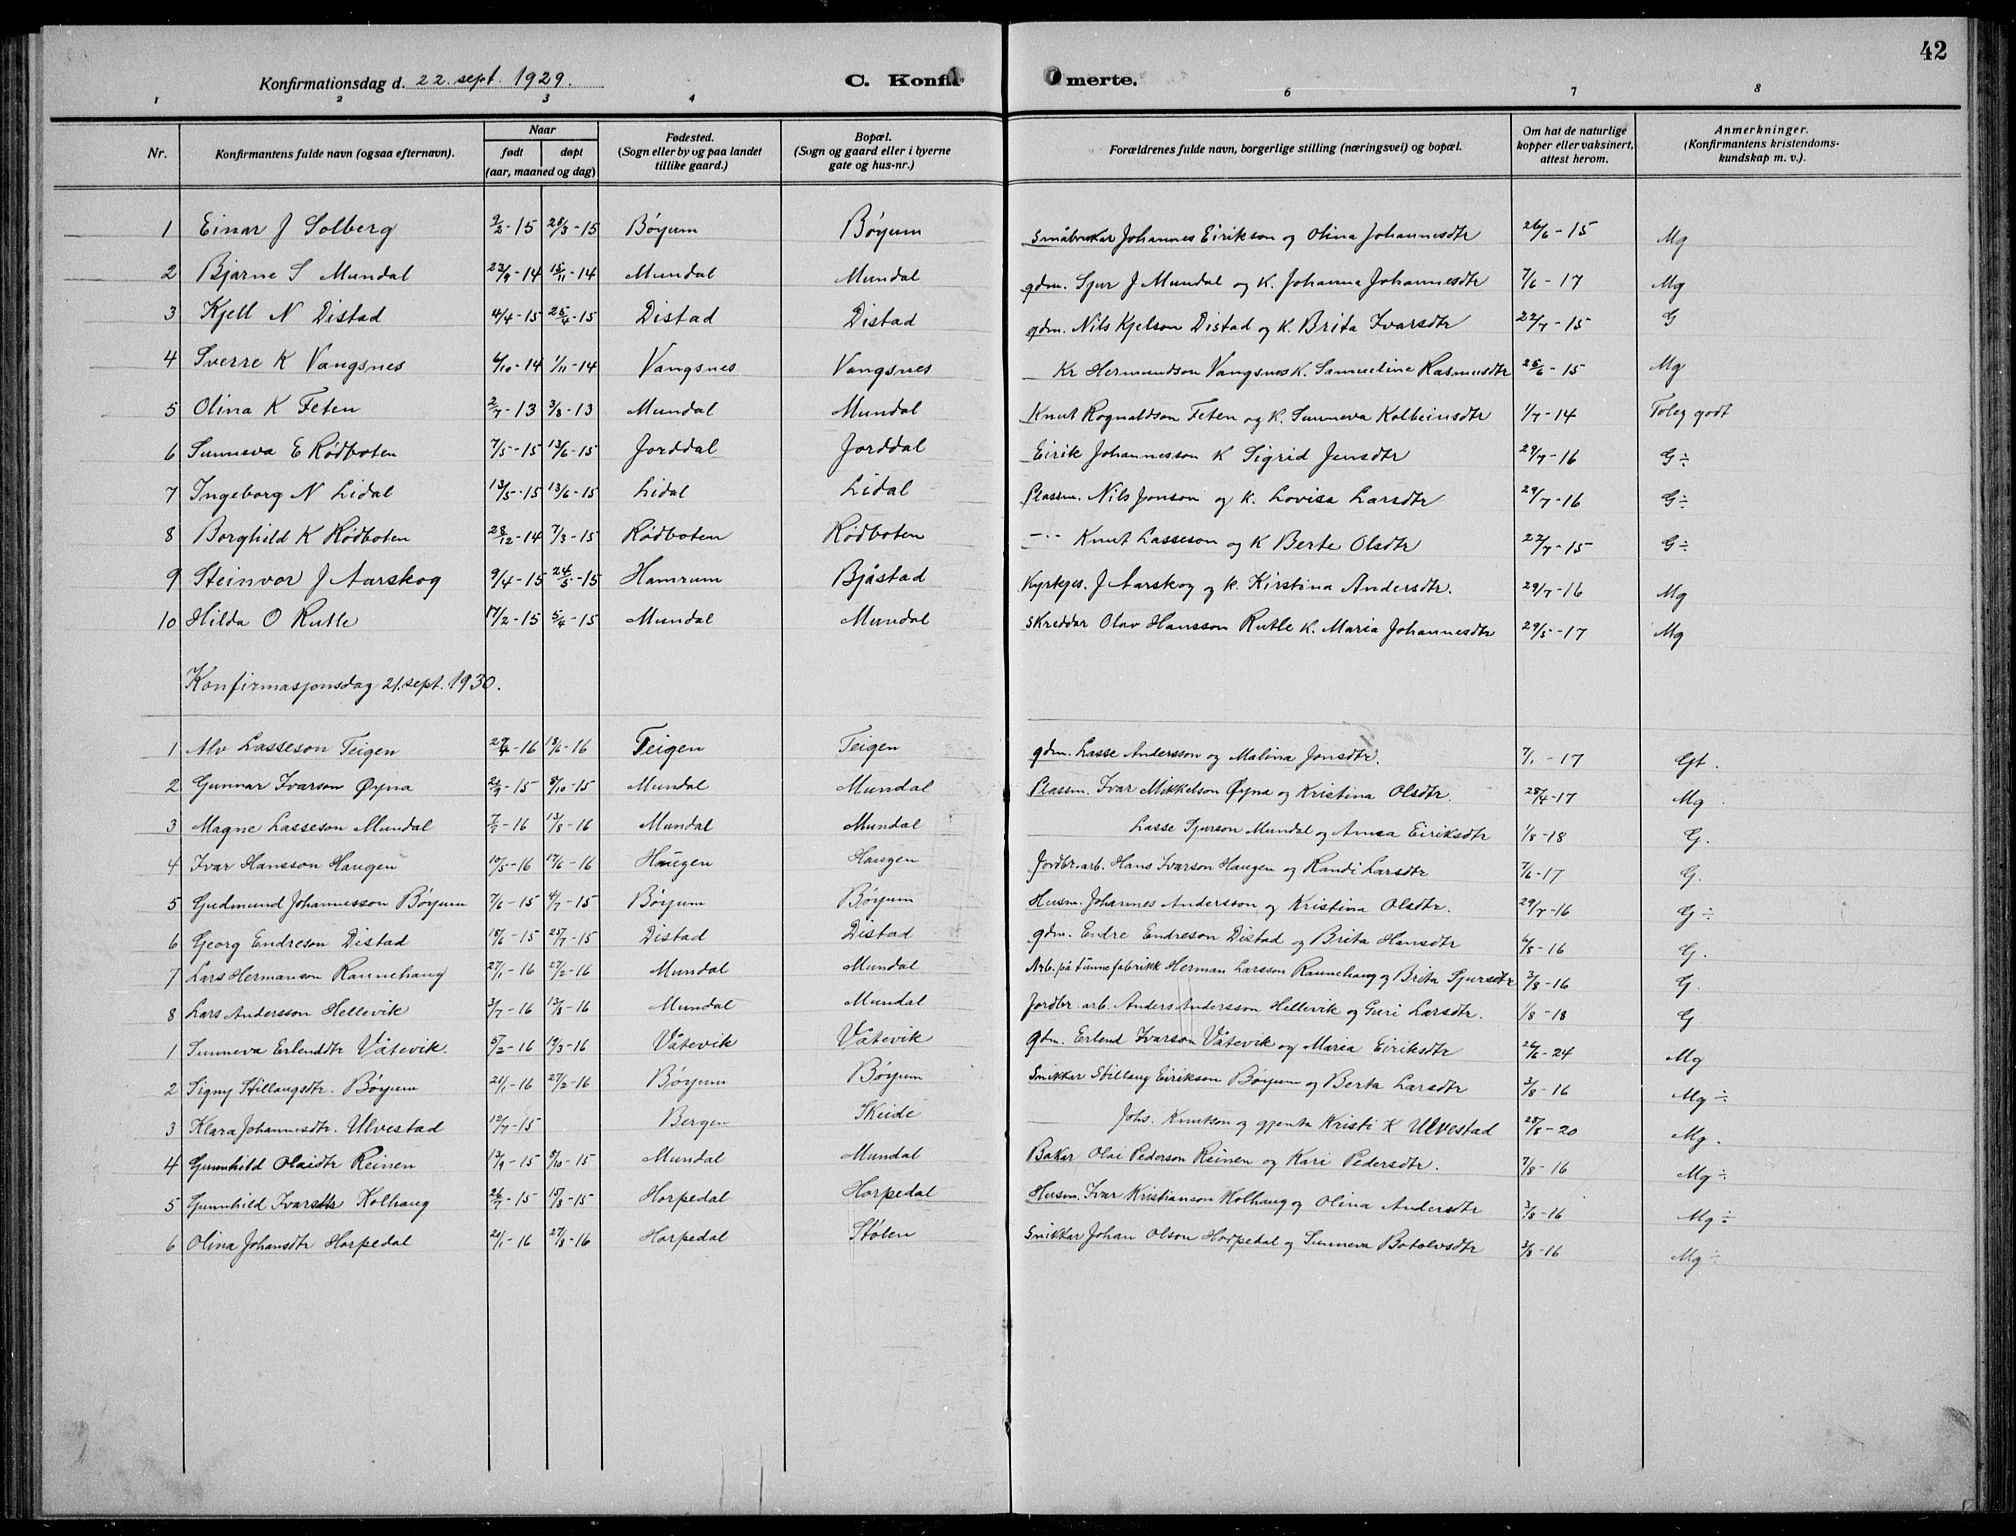 42
Konfirmationsdag d. 22. sept. 1929. C. Konfirmerte.
1 2 3 4 6 7 8
Nr. Konfirmantens fulde navn (ogsaa efternavn). Naar født døpt (aar, maaned og dag) Fødested. (Sogn eller by og paa landet tillike gaard.) Bopæl. (Sogn og gaard eller i byerne gate og hus-nr.) Forældrenes fulde navn, borgerlige stilling (næringsvei) og bopæl. Om hat de naturlige kopper eller vaksinert, attest herom. Anmerkninger. (Konfirmantens kristendomskundskap m. v.).
1 Einar J Solberg 9/2-15 28/3-15 Bøyum Bøyum Småbrukar Johannes Eirikson og Olina Johannesdtr 26/6-15 Mg
2 Bjarne S Mundal 23/9-14 15/11-14 Mundal Mundal gdm. Sjur J Mundal og K. Johanna Johannesdtr 7/6-17 Mg
3 Kjell N Distad 4/4-15 25/4-15 Distad Distad gdm. Nils Kjelson Distad og K. Brita Ivarsdtr 22/7-15 G
4 Sverre K Vangsnes 6/10-14 1/11-14 Vangsnes Vangsnes Kr Hermundson Vangsnes K. Samueline Rasmusdtr 25/6-15 Mg
5 Olina K Feten 2/7-13 3/8-13 Mundal Mundal Knut Rognaldson Feten og K. Sunneva Kolbeinsdtr 1/7-14 Toleg godt
6 Sunneva E Rødboten 7/5-15 13/6-15 Jorddal Jorddal Eirik Johannesson K Sigrid Jensdtr 29/7-16 G÷
7 Ingeborg N Lidal 13/5-15 13/6-15 Lidal Lidal Plassm. Nils Jonson og K. Lovisa Larsdtr 29/7-16 G÷
8 Borghild K Rødboten 28/12-14 7/3-15 Rødboten Rødboten -"- Knut Lasseson og K Berte Olsdtr 22/7-15 G÷
9 Steinvor J Aarskog 9/4-15 24/5-15 Hamrum Bjåstad Kyrkjes. J Aarskog og K. Kirstina Andersdtr. 29/7-16 Mg
10 Hilda O Rutle 17/2-15 5/4-15 Mundal Mundal Skreddar Olav Hansson Rutle K. Maria Johannesdtr 29/5-17 Mg
Konfirmasjonsdag 21. sept. 1930.
1 Alv Lasseson Teigen 29/4-16 18/6-16 Teigen Teigen gdm. Lasse Andersson og Malina Jonsdtr. 7/1-17 Gt.
2 Gunnar Ivarson Øyna 2/9-15 8/10-15 Mundal Mundal Plassm. Ivar Mikkelson Øyna og Kristina Olsdtr. 28/4-17 Mg.
3 Magne Lasseson Mundal 7/7-16 13/8-16 Mundal Mundal Lasse Sjurson Mundal og Anna Eiriksdtr 1/8-18 G.
4 Ivar Hansson Haugen 10/5-16 17/6-16 Haugen Haugen Jordbr.-arb. Hans Ivarson Haugen og Randi Larsdtr 7/6-17 G.
5 Gudmund Johannesson Bøyum 7/6-15 4/7-15 Bøyum Bøyum Husm. Johannes Andersson og Kristina Olsdtr. 29/7-16 G÷
6 Georg Endreson Distad 18/6-15 25/7-15 Distad Distad gdm. Endre Endreson Distad og Brita Hansdtr 6/8-16 G.
7 Lars Hermanson Raunehaug 27/1-16 27/2-16 Mundal Mundal Arb. på tunnefabrikk Herman Larsson Raunehaug og Brita Sjursdtr 3/8-16 G.
8 Lars Andersson Hellevik 3/7-16 13/8-16 Mundal Mundal Jordbr. arb. Anders Andersson Hellevik og Guri Larsdtr. 1/8-18 G.
1 Sunneva Erlenddtr Våtevik. 5/2-16 19/3-16 Våtevik Våtevik gdm. Erlend Ivarson Våtevik og Maria Eiriksdtr 26/6-24 Mg
2 Signy Stillaugsdtr. Bøyum 21/1-16 27/2-16 Bøyum Bøyum Snikkar Stillaug Eirikson Bøyum og Berta Larsdtr 3/8-16 Mg÷
3 Klara Johannesdtr. Ulvestad 12/7-15 Bergen Skeide Johs. Knutson og gjenta Kristi K Ulvestad 28/8-20 Mg.
4 Gunnhild Olaidtr Reinen 13/9-15 8/10-15 Mundal Mundal Bakar Olai Pederson Reinen og Kari Pedersdtr. 7/8-16 Mg÷
5 Gunnhild Ivarsdtr Kolhaug 26/7-15 15/8-15 Horpedal Horpedal Husm. Ivar Kristianson Kolhaug og Olina Andersdtr 3/8-16 Mg÷
6 Olina Johansdtr Horpedal 20/1-16 27/3-16 Horpedal Stølen Snikkar Johan Olson Horpedal og Sunneva Botolvsdtr 3/8-16 Mg÷